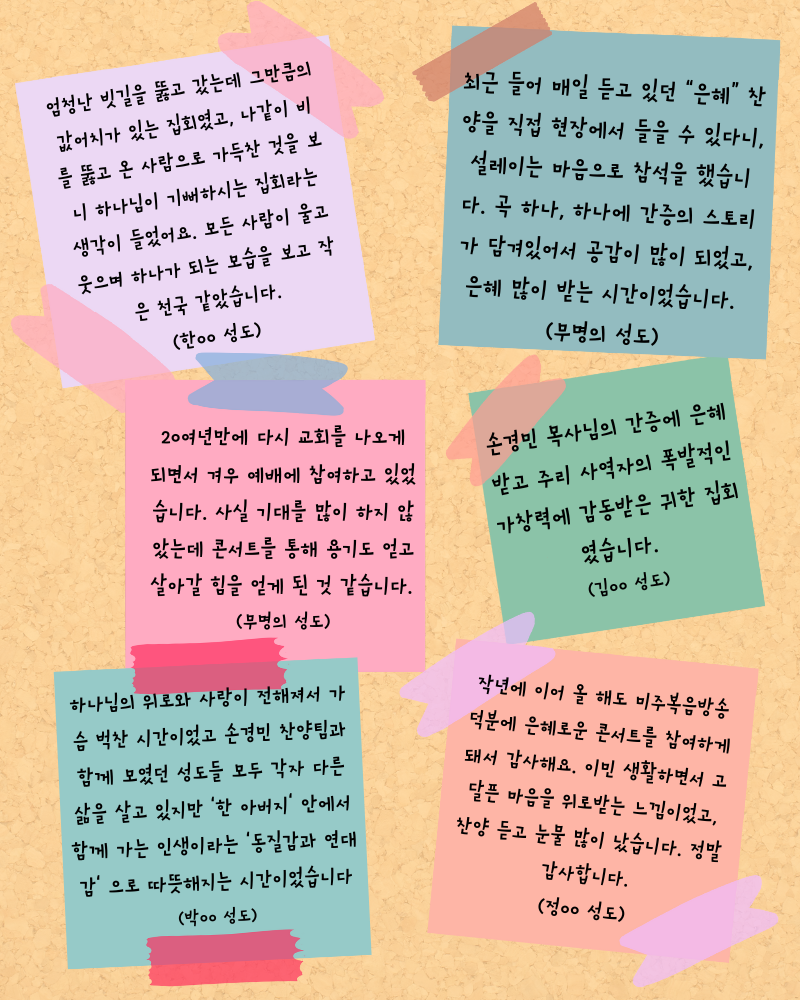 엄청난 빗길을 뚫고 갔는데 그만큼의
값어치가 있는 집회였고, 나같이 비
를 뚫고 온 사람으로 가득찬 것을 보
니 하나님이 기뻐하시는 집회라는
생각이 들었어요. 모든 사람이 울고
웃으며 하나가 되는 모습을 보고 작
은 천국 같았습니다.
(한oo 성도)
최근 들어 매일 듣고 있던 “은혜” 찬
양을 직접 현장에서 들을 수 있다니,
설레이는 마음으로 참석을 했습니
다. 곡 하나, 하나에 간증의 스토리
가 담겨있어서 공감이 많이 되었고,
은혜 많이 받는 시간이었습니다.
(무명의 성도)
20여년만에 다시 교회를 나오게
되면서 겨우 예배에 참여하고 있었
습니다. 사실 기대를 많이 하지 않
았는데 콘서트를 통해 용기도 얻고
살아갈 힘을 얻게 된 것 같습니다.
(무명의 성도)
손경민 목사님의 간증에 은혜
받고 주리 사역자의 폭발적인
가창력에 감동받은 귀한 집회
였습니다.
(김oo 성도)
하나님의 위로와 사랑이 전해져서 가
슴 벅찬 시간이었고 손경민 찬양팀과
함께 모였던 성도들 모두 각자 다른
삶을 살고 있지만 '한 아버지' 안에서
함께 가는 인생이라는 '동질감과 연대
감' 으로 따뜻해지는 시간이었습니다
(박oo 성도)
작년에 이어 올 해도 미주복음방송
덕분에 은혜로운 콘서트를 참여하게
돼서 감사해요. 이민 생활하면서 고
달픈 마음을 위로받는 느낌이었고,
찬양 듣고 눈물 많이 났습니다. 정말
감사합니다.
(정oo 성도)